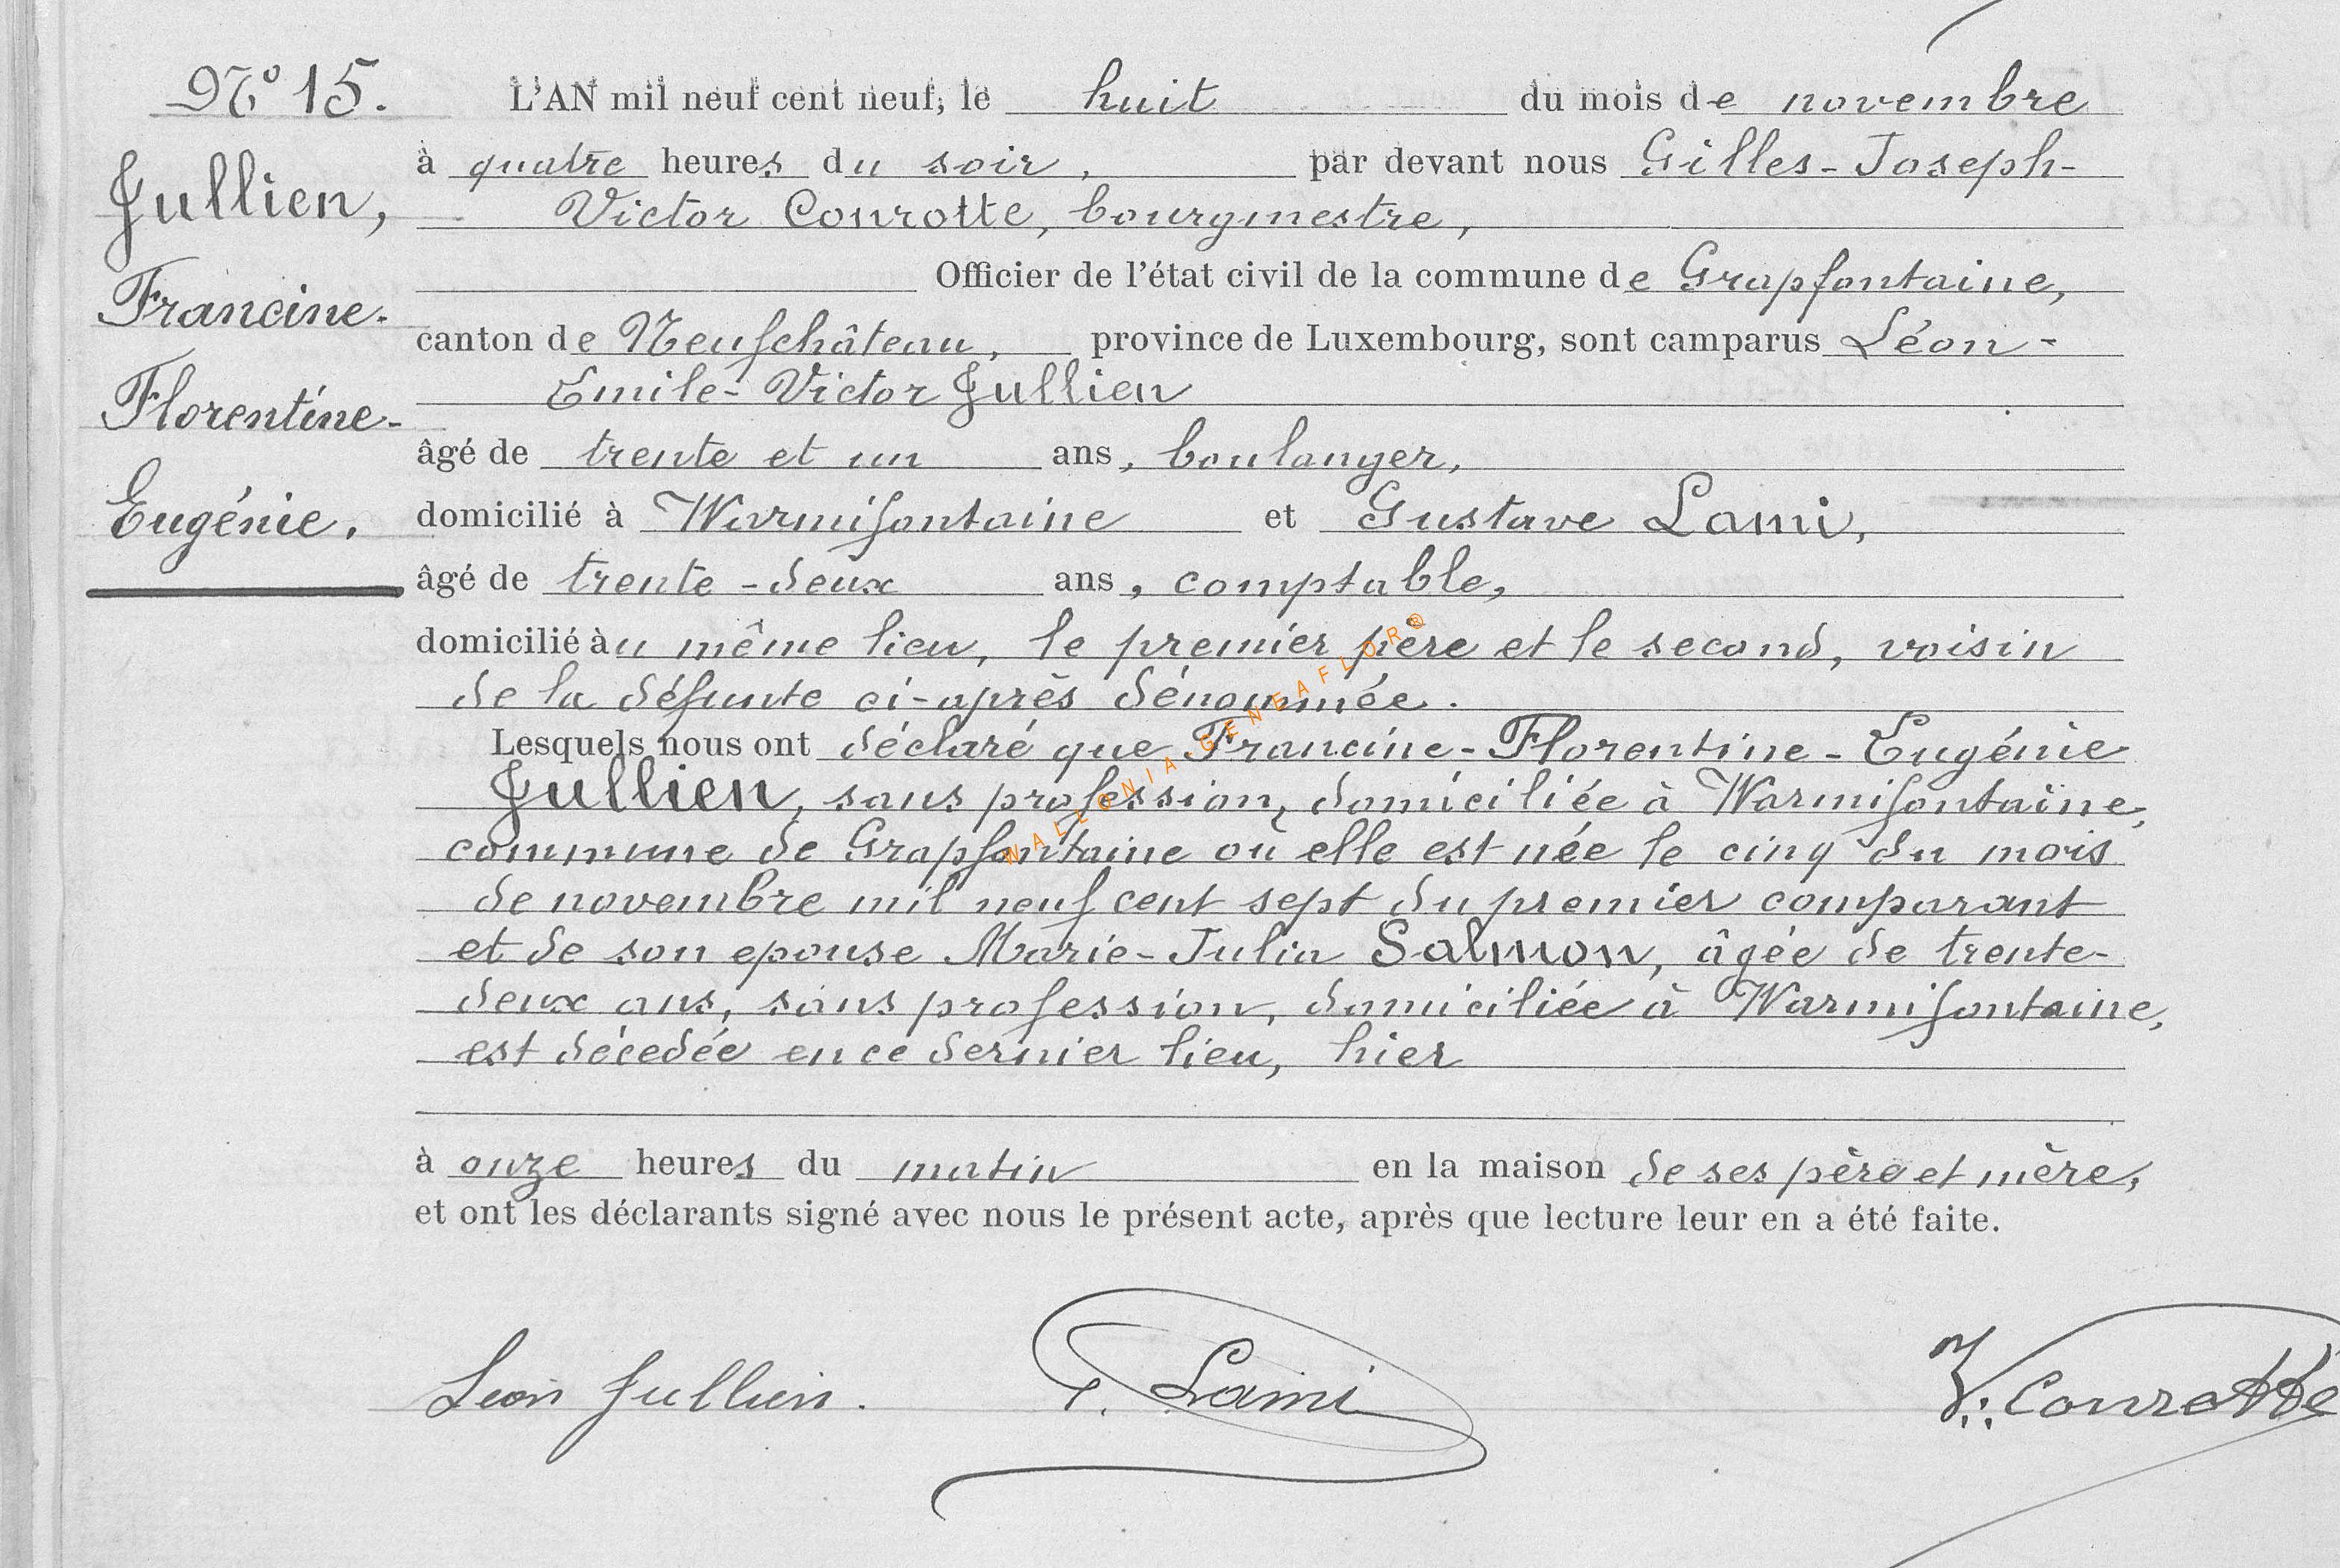 N° 15.
Jullien,
Francine-
Florentine-
Eugénie.
L'AN mil neuf cent neuf, le huit du mois de novembre
à quatre heures du soir, par devant nous Gilles-Joseph-
Victor Conrotte, bourgmestre,
Officier de l'état civil de la commune de Grapfontaine,
canton de Neufchâteau, province de Luxembourg, sont camparus Léon-
Emile-Victor Jullien
âgé de trente et un ans, boulanger,
domicilié à Warmifontaine et Gustave Lami,
âgé de trente-deux ans, comptable,
domicilié àu même lieu, le premier père et le second, voisin
de la défunte ci-après dénommée.
Lesquels nous ont déclaré que Francine-Florentine-Eugénie
Jullien, sans profession, domiciliée à Warmifontaine,
commune de Grapfontaine où elle est née le cinq du mois
de novembre mil neuf cent sept du premier comparant
et de son epouse Marie-Julia Salmon, âgée de trente-
deux ans, sans profession, domiciliée à Warmifontaine,
est décedée en ce dernier lieu, hier
à onze heures du matin en la maison de ses père et mère,
et ont les déclarants signé avec nous le présent acte, après que lecture leur en a été faite.
Leon Jullien. G. Lami V. Conrotte
WALLONIA GENEAFLOR®